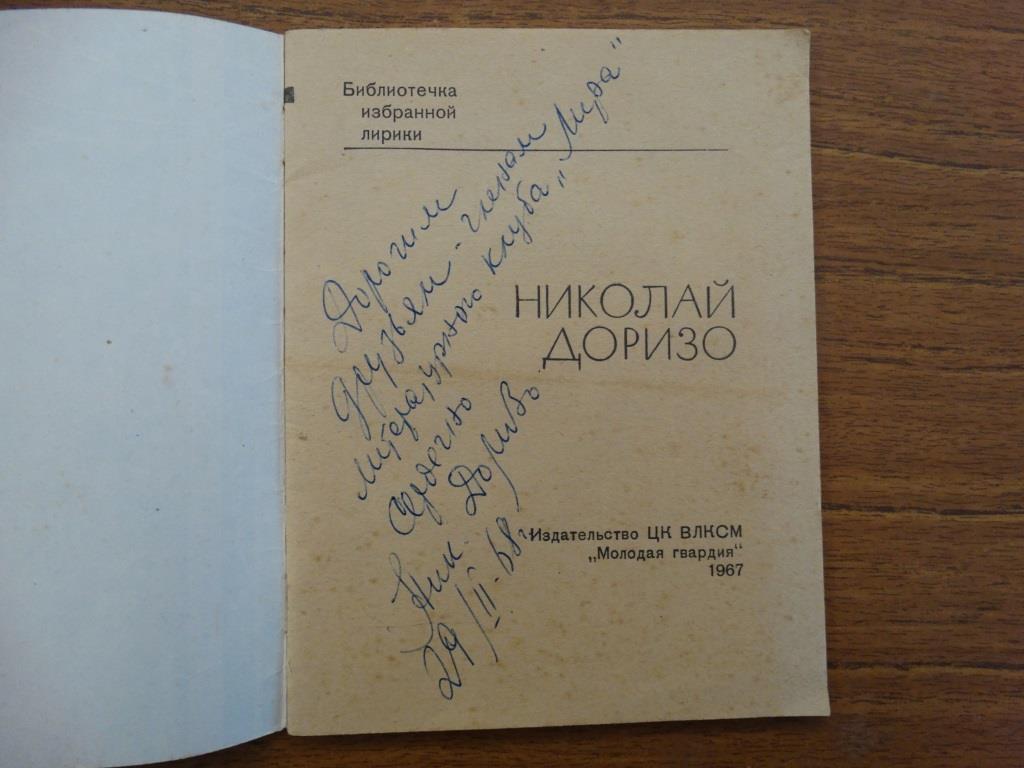 Библиотечка
избранной
лирики
Дорогим
друзьям - членам
литературного клуба „Лира"
Сердечно
Ник. Доризо
29/II-68г.
НИКОЛАЙ
ДОРИЗО
Издательство ЦК ВЛКСМ
„Молодая гвардия"
1967